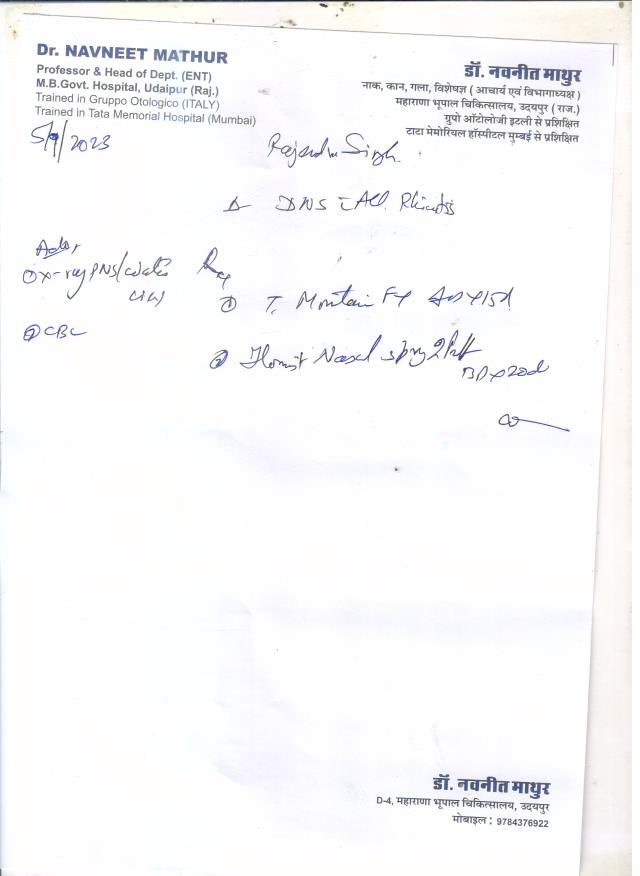 Dr. NAVNEET MATHUR
Professor & Head of Dept. (ENT)
M.B.Govt. Hospital, Udaipur (Raj.)
Trained in Gruppo Otologico (ITALY)
Trained in Tata Memorial Hospital (Mumbai)
डॉ. नवनीत माथुर
नाक, कान, गला, विशेषज्ञ ( आचार्य एवं विभागाध्यक्ष )
महाराणा भूपाल चिकित्सालय, उदयपुर ( राज.)
ग्रुपो ऑटोलोजी इटली से प्रशिक्षित
टाटा मेमोरियल हॉस्पीटल मुम्बई से प्रशिक्षित
5/9/2023
Rajendra Singh
Δ DNS All. Rhinitis
Adv,
① X-ray PNS/water
view
② CBC
① T. Montain FX
② Nasal spray 2 Puff
BD x 20d
डॉ. नवनीत माथुर
D-4, महाराणा भूपाल चिकित्सालय, उदयपुर
मोबाइल : 9784376922